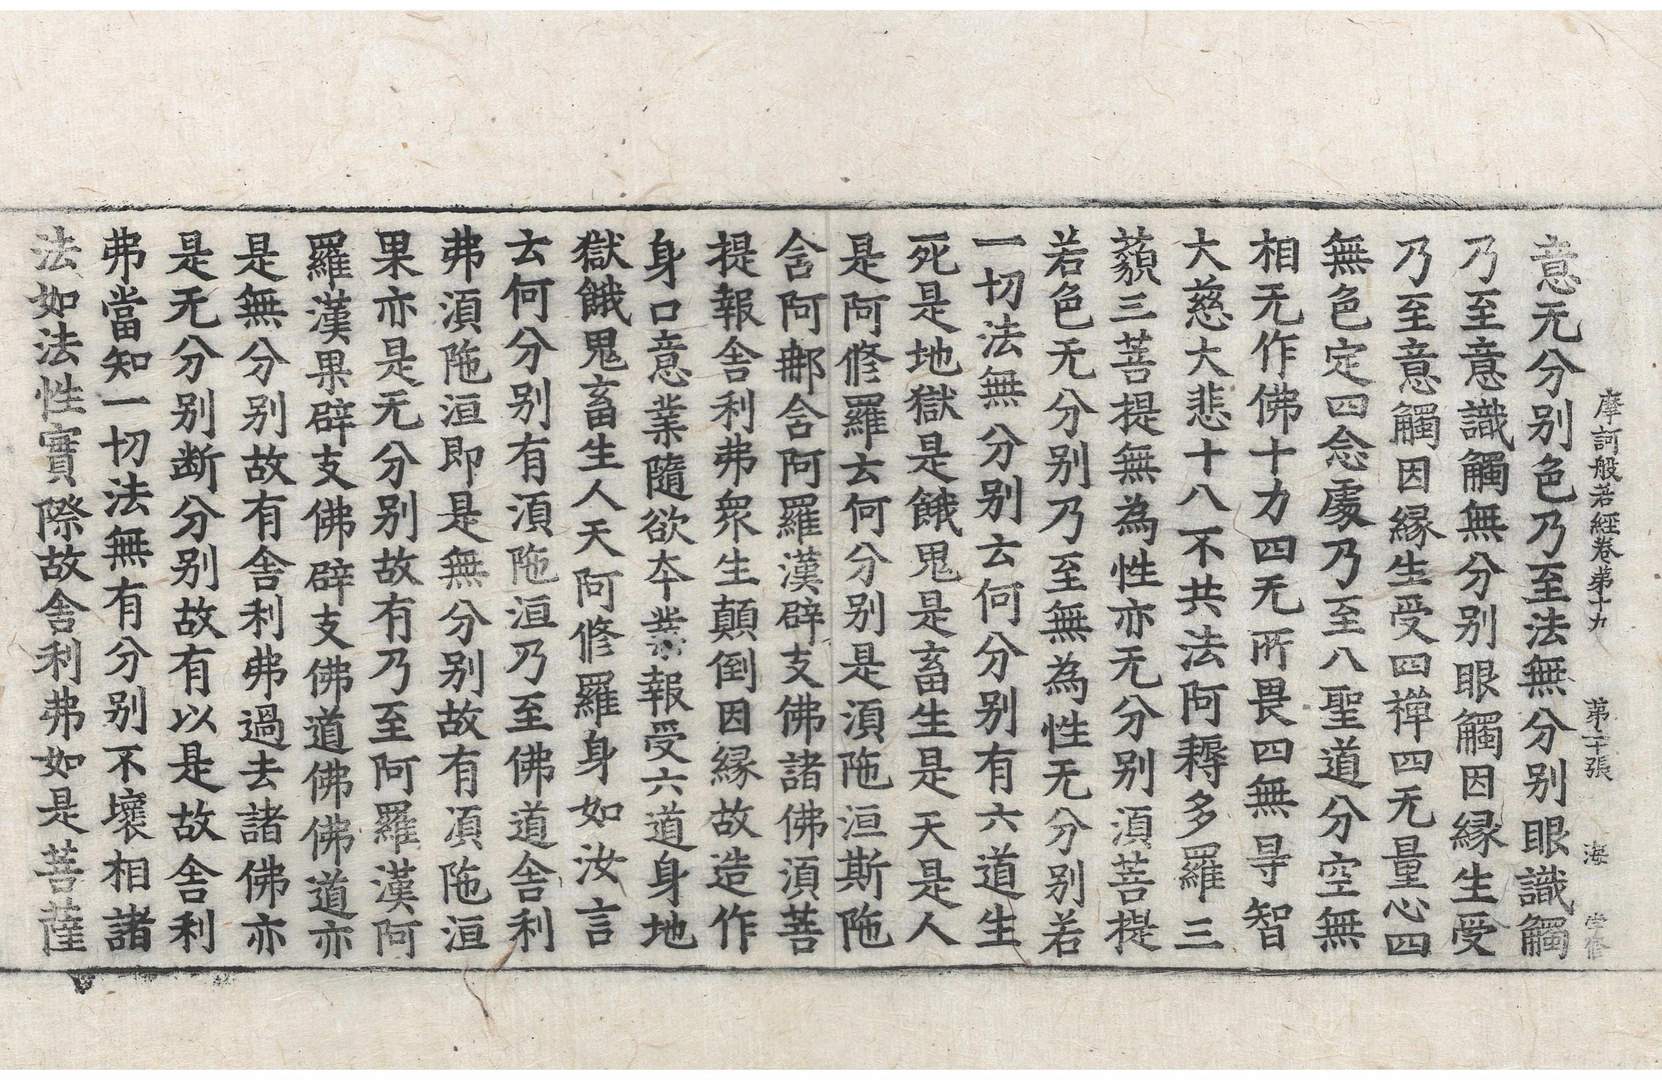 摩訶般若經卷第十九 第二十張 海
意无分别色乃至法無分别眼識觸
乃至意識觸無分别眼觸因縁生受
乃至意觸因縁生受四禪四无量心四
無色定四念處乃至八聖道分空無
相无作佛十力四无所畏四無㝵智
大慈大悲十八不共法阿耨多羅三
藐三菩提無為性亦无分别湏菩提
若色无分别乃至無為性无分别若
一切法無分别云何分别有六道生
死是地獄是餓鬼是畜生是天是人
是阿修羅云何分别是湏陁洹斯陁
含阿那含阿羅漢辟支佛諸佛湏菩
提報舍利弗衆生顛倒因縁故造作
身口意業隨欲夲業報受六道身地
獄餓鬼畜生人天阿修羅身如汝言
云何分别有湏陁洹乃至佛道舍利
弗湏陁洹即是無分别故有湏陁洹
果亦是无分别故有乃至阿羅漢阿
羅漢果辟支佛辟支佛道佛佛道亦
是無分别故有舍利弗過去諸佛亦
是无分别断分别故有以是故舍利
弗當知一切法無有分别不壞相諸
法如法性實際故舍利弗如是菩薩